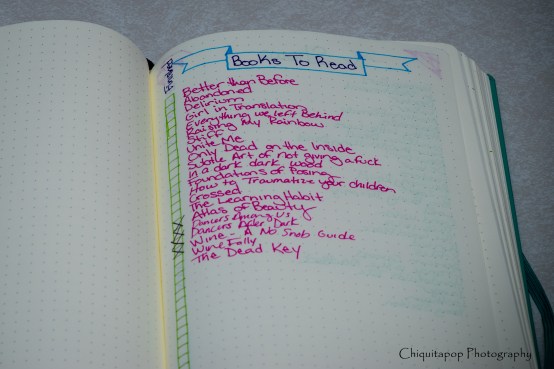 Finished
Books To Read
Better than Before
Abandoned
Delirium
Girl in Translation
Everything we left Behind
Raising My Rainbow
Stiff
Unite Me
Only Dead on the Inside
Subtle Art of not giving a fuck
In a dark dark wood
Foundations of Posing
How to Traumatize your children
Crossed
The Learning Habit
Atlas of Beauty
Dancers Among Us
Dancers After Dark
Wine - A No Snob Guide
Wine Folly
The Dead Key
Chiquitapop Photography